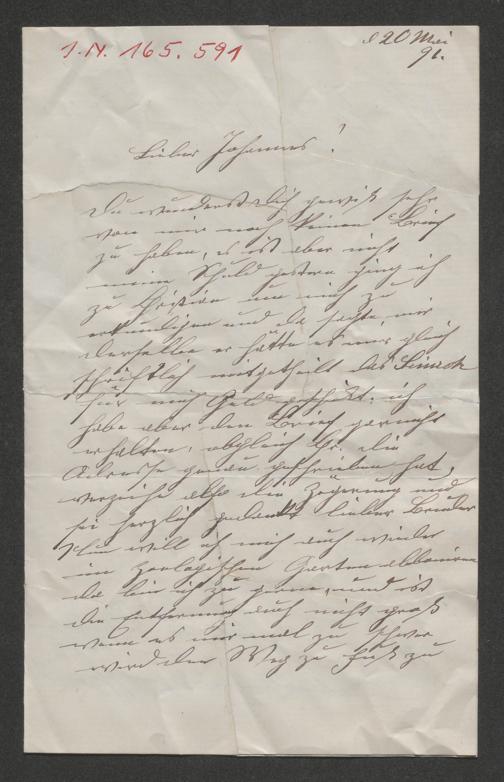 J.N. 165.591
d 20 Mai
91.
Lieber Johannes!
Du wunderst Dich gewiß sehr
von mir noch keinen Brief
zu haben, es ist aber nicht
meine Schuld gestern ging ich
zu Christian um mich zu
erkundigen und da sagte mir
derselbe er hätte es mir gleich
schriftlich mitgetheilt das
für mich Geld geschickt. ich
habe aber den Brief gar nicht
erhalten, obgleich Er die
Adresse genau geschrieben hat,
verzeihe also die Zögerung und
sei herzlich gedankt lieber Bruder
Nun will ich mich auch wieder
im zoologischen Garten abboniren
da bin ich zu gerne, und ist
die Entfernung auch nicht groß
wenn es mir mal zu schwer
wird den Weg zu Fuß zu